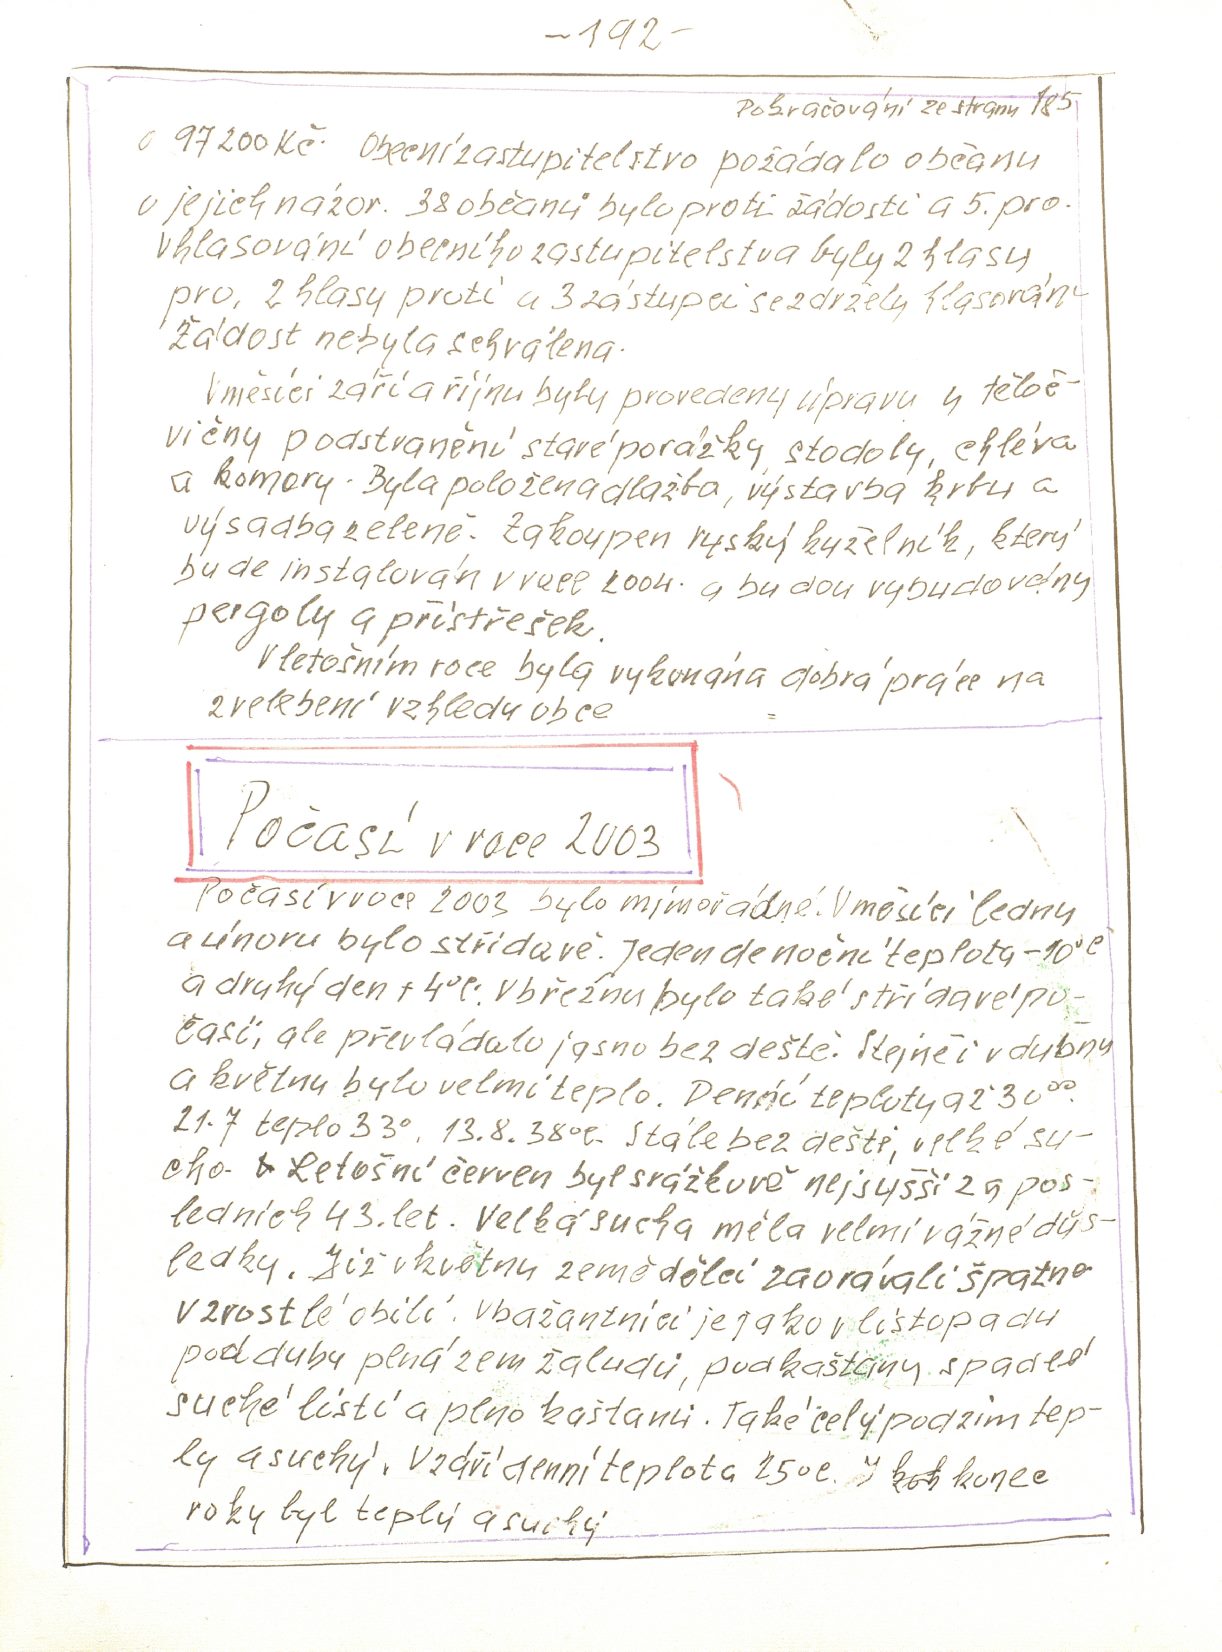 -192-
Pokračování ze strany 185
o 97200 Kč. Obecní zastupitelstvo požádalo občanu
o jejich názor. 38 občanů bylo proti žádosti a 5. pro.
V hlasování obecního zastupitelstva byly 2 hlasy
pro, 2 hlasy proti a 3 zástupci se zdržely hlasování
Žádost nebyla schválena.
V měsíci září a říjnu byly provedeny úpravy u těloč-
vičny podstranění staré porážky stodoly, chléva
a komory. Byla položena dlažba, výstavba krbu a
výsadba zeleně. Zakoupen ruský kuželník, který
bude instalován v roce 2004. a budou vybudovány
pergoly a přístřešek.
V letošním roce byla vykonána dobrá práce na
zvelebení vzhledu obce
Počasí v roce 2003
Počasí v roce 2003 bylo mimořádné. V měsíci lednu
a únoru bylo střídavě. Jeden de noční teplota -10°C
a druhý den + 4°C. V březnu bylo také střídavé po-
časí, ale převládalo jasno bez deště. Stejně i v dubnu
a květnu bylo velmi teplo. Denní teploty až 30°°.
21.7 teplo 33°. 13.8. 38°C. Stále bez deště, velké su-
cho. Letošní červen byl srážkově nejsušší za pos-
ledních 43. let. Velká sucha měla velmi vážné důs-
ledky. Již v květnu zemědělci zaorávali špatně
vzrostlé obilí. V bažantnici je jako v listopadu
pod duby plná zem žaludů, pod kaštany spadlé
suché listí a plno kaštanů. Také celý podzim tep-
lý a suchý. V září denní teplota 25°C. I konec
roku byl teplý a suchý